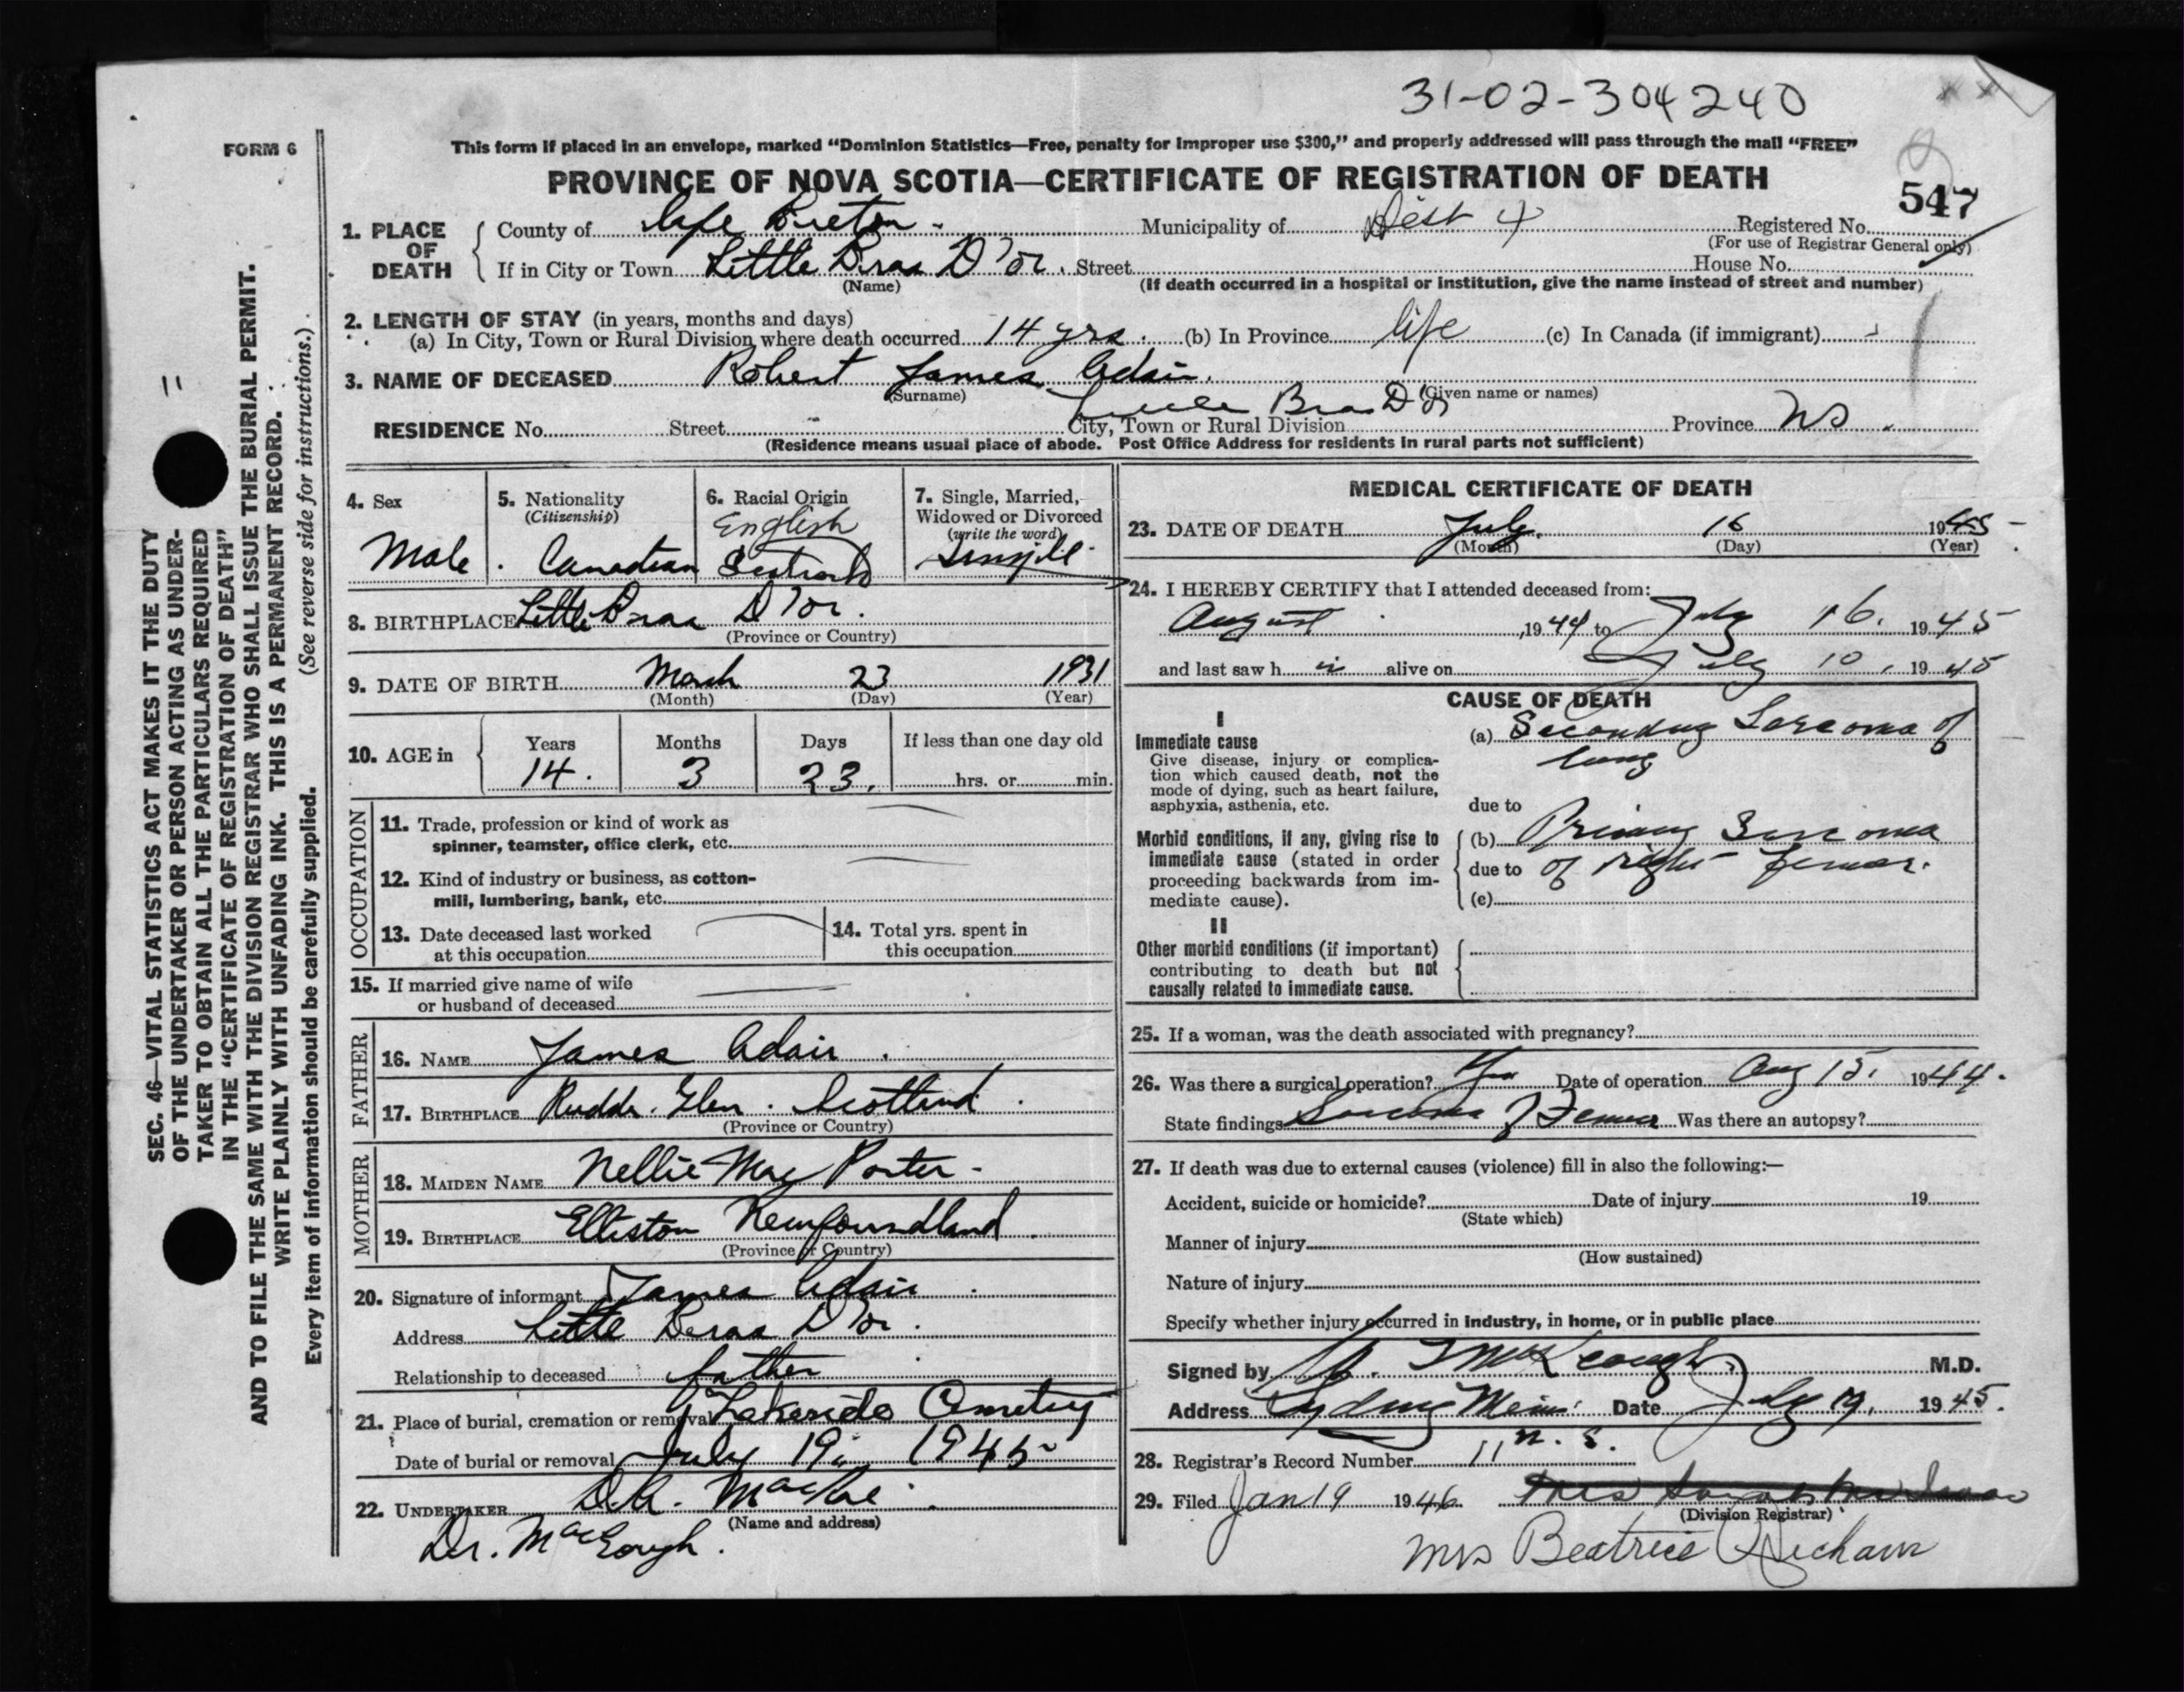 31-02-304240
FORM 6
This form if placed in an envelope, marked "Dominion Statistics—Free, penalty for improper use $300," and properly addressed will pass through the mail "FREE"
PROVINCE OF NOVA SCOTIA—CERTIFICATE OF REGISTRATION OF DEATH
547
1. PLACE OF DEATH
County of Cape Breton Municipality of Dist 4 Registered No.
(For use of Registrar General only)
If in City or Town Little Bras D'or. Street House No.
(Name) (If death occurred in a hospital or institution, give the name instead of street and number)
2. LENGTH OF STAY (in years, months and days)
(a) In City, Town or Rural Division where death occurred 14 yrs. (b) In Province life (c) In Canada (if immigrant)
3. NAME OF DECEASED Robert James Adair.
(Surname) (Given name or names)
Little Bras D'or
RESIDENCE No. Street City, Town or Rural Division Province NS.
(Residence means usual place of abode. Post Office Address for residents in rural parts not sufficient)
4. Sex Male.
5. Nationality (Citizenship) Canadian
6. Racial Origin English
7. Single, Married, Widowed or Divorced (write the word) Single
8. BIRTHPLACE Little Bras D'or.
(Province or Country)
9. DATE OF BIRTH March 23 1931
(Month) (Day) (Year)
10. AGE in Years 14. Months 3 Days 23. If less than one day old hrs. or min.
OCCUPATION
11. Trade, profession or kind of work as spinner, teamster, office clerk, etc.
12. Kind of industry or business, as cotton-mill, lumbering, bank, etc.
13. Date deceased last worked at this occupation
14. Total yrs. spent in this occupation
15. If married give name of wife or husband of deceased
FATHER
16. NAME James Adair.
17. BIRTHPLACE Glen. Scotland.
(Province or Country)
MOTHER
18. MAIDEN NAME Nellie May Porter-
19. BIRTHPLACE Elliston Newfoundland.
(Province or Country)
20. Signature of informant James Adair
Address Little Bras D'or.
Relationship to deceased father
21. Place of burial, cremation or removal Lakeside Cemetery
Date of burial or removal July 19, 1945
22. UNDERTAKER D.A.
(Name and address)
Dr.
MEDICAL CERTIFICATE OF DEATH
23. DATE OF DEATH July. 16 1945
(Month) (Day) (Year)
24. I HEREBY CERTIFY that I attended deceased from:
August, 1944 to July 16. 1945
and last saw h im alive on July 10, 1945
CAUSE OF DEATH
I
Immediate cause
Give disease, injury or complication which caused death, not the mode of dying, such as heart failure, asphyxia, asthenia, etc.
(a) Secondary Sarcoma of
lung
due to
Morbid conditions, if any, giving rise to immediate cause (stated in order proceeding backwards from immediate cause).
(b) Primary Sarcoma
due to of right femur.
(c)
II
Other morbid conditions (if important) contributing to death but not causally related to immediate cause.
25. If a woman, was the death associated with pregnancy?
26. Was there a surgical operation? Yes Date of operation Aug 15. 1944.
State findings Sarcoma of Femur Was there an autopsy?
27. If death was due to external causes (violence) fill in also the following:—
Accident, suicide or homicide? Date of injury 19
(State which)
Manner of injury
(How sustained)
Nature of injury
Specify whether injury occurred in industry, in home, or in public place
Signed by McKeough M.D.
Address Sydney Mines Date July 19, 1945.
N.S.
28. Registrar's Record Number 11
29. Filed Jan 19 1946
(Division Registrar)
Mrs Beatrice
SEC. 46—VITAL STATISTICS ACT MAKES IT THE DUTY
OF THE UNDERTAKER OR PERSON ACTING AS UNDER-
TAKER TO OBTAIN ALL THE PARTICULARS REQUIRED
IN THE "CERTIFICATE OF REGISTRATION OF DEATH"
AND TO FILE THE SAME WITH THE DIVISION REGISTRAR WHO SHALL ISSUE THE BURIAL PERMIT.
WRITE PLAINLY WITH UNFADING INK. THIS IS A PERMANENT RECORD.
Every item of information should be carefully supplied. (See reverse side for instructions.)
11